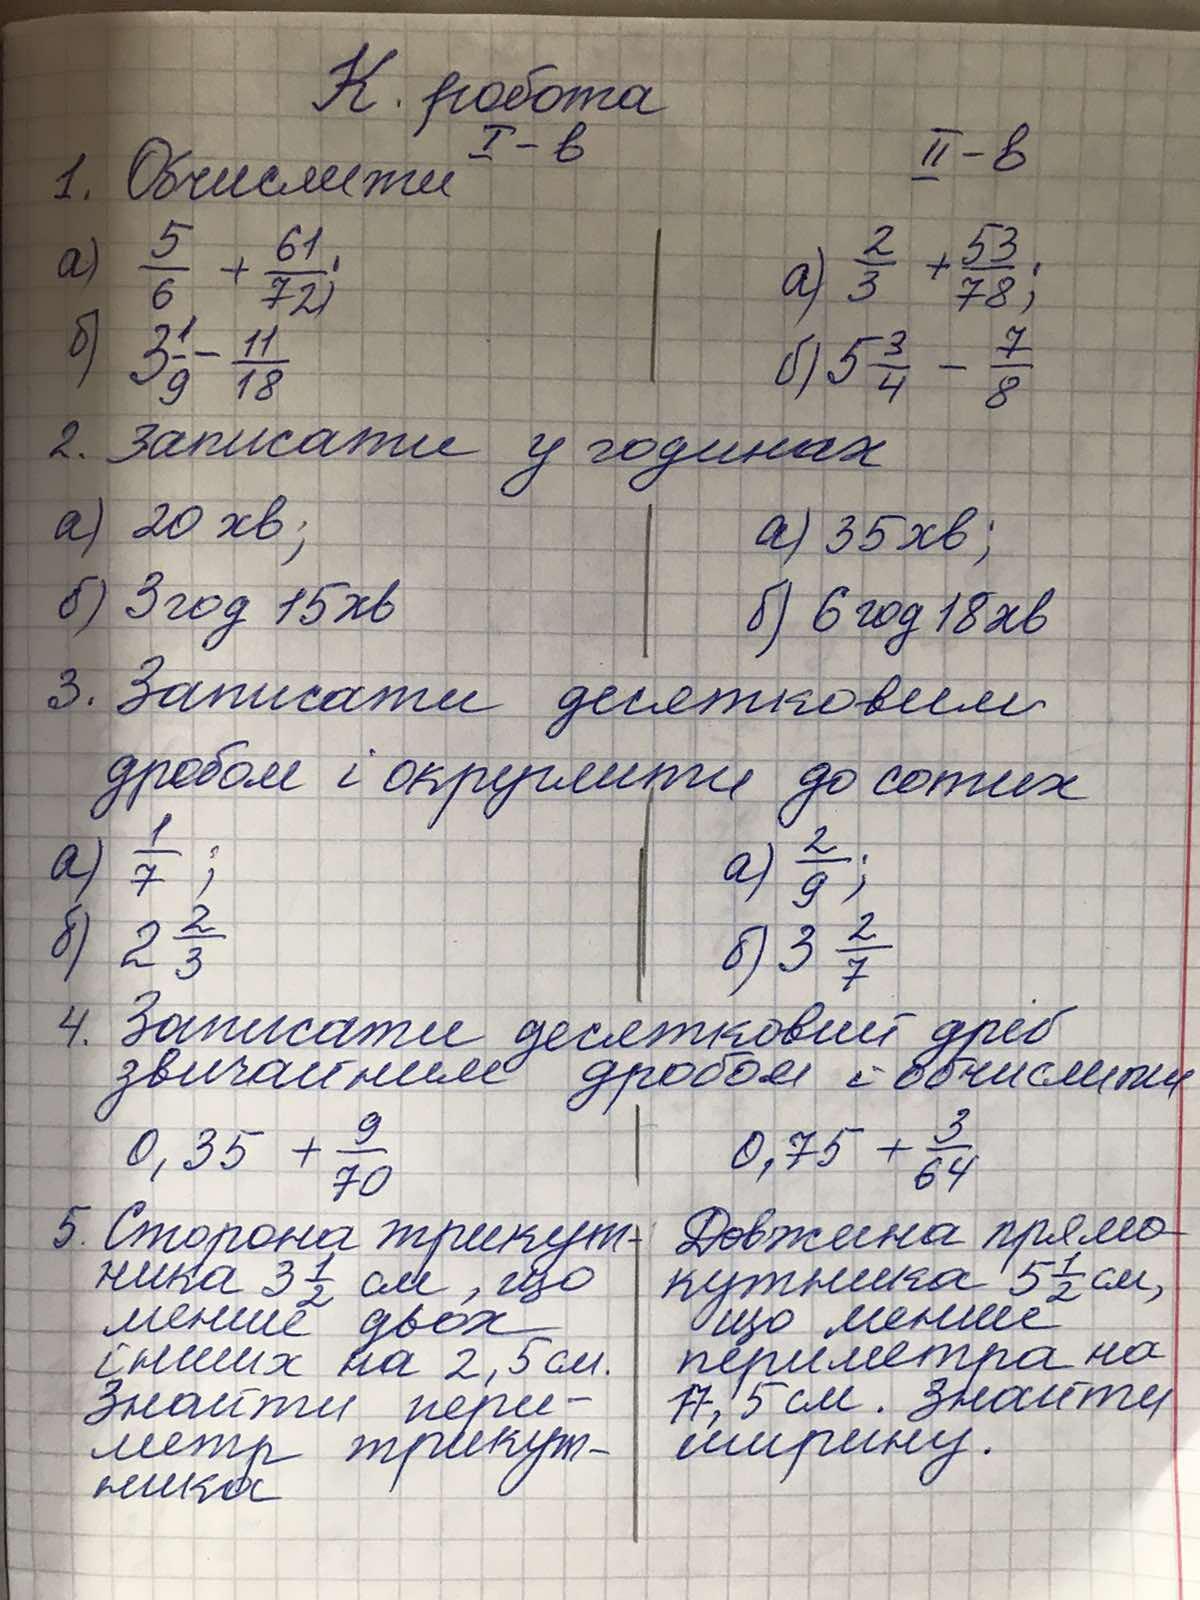 К. робота
I - в II - в
1. Обчислити
а) 5/6 + 61/72; а) 2/3 + 53/78;
б) 3 1/9 - 11/18 б) 5 3/4 - 7/8
2. Записати у годинах
а) 20 хв; а) 35 хв;
б) 3 год 15 хв б) 6 год 18 хв
3. Записати десятковим
дробом і округлити до сотих
а) 1/7; а) 2/9;
б) 2 2/3 б) 3 2/7
4. Записати десятковий дріб
звичайним дробом і обчислити
0,35 + 9/70 0,75 + 3/64
5. Сторона трикут-
ника 3 1/2 см, що
менше двох
інших на 2,5 см.
Знайти пери-
метр трикут-
ника
Довжина прямо-
кутника 5 1/2 см,
що менше
периметра на
17,5 см. Знайти
ширину.